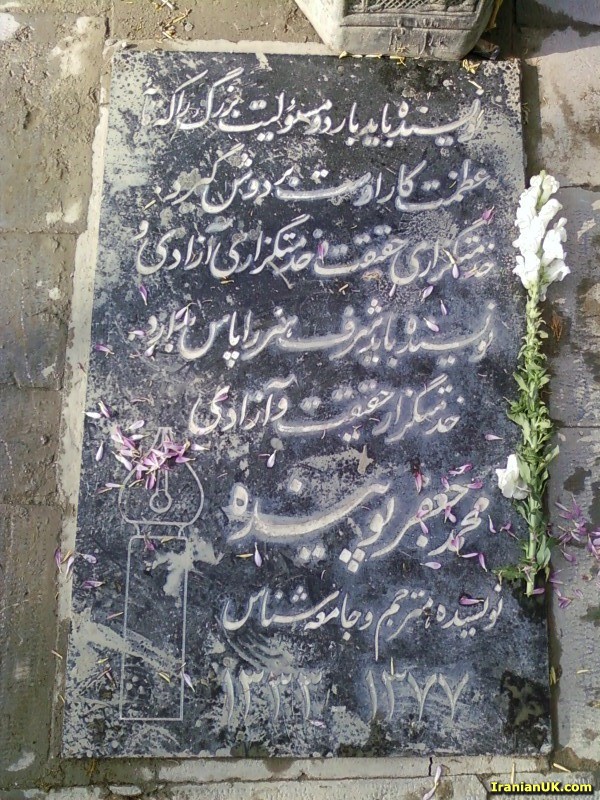 نویسنده باید بار دو مسئولیت بزرگ را که
عظمت کار اوست بر دوش گیرد:
خدمتگزاری حقیقت خدمتگزاری آزادی و
نویسنده باید شرف هنر را پاس بدارد
خدمتگزار حقیقت و آزادی
محمد جعفر پوینده
نویسنده مترجم و جامعه شناس
۱۳۳۳ ۱۳۷۷
IranianUK.com